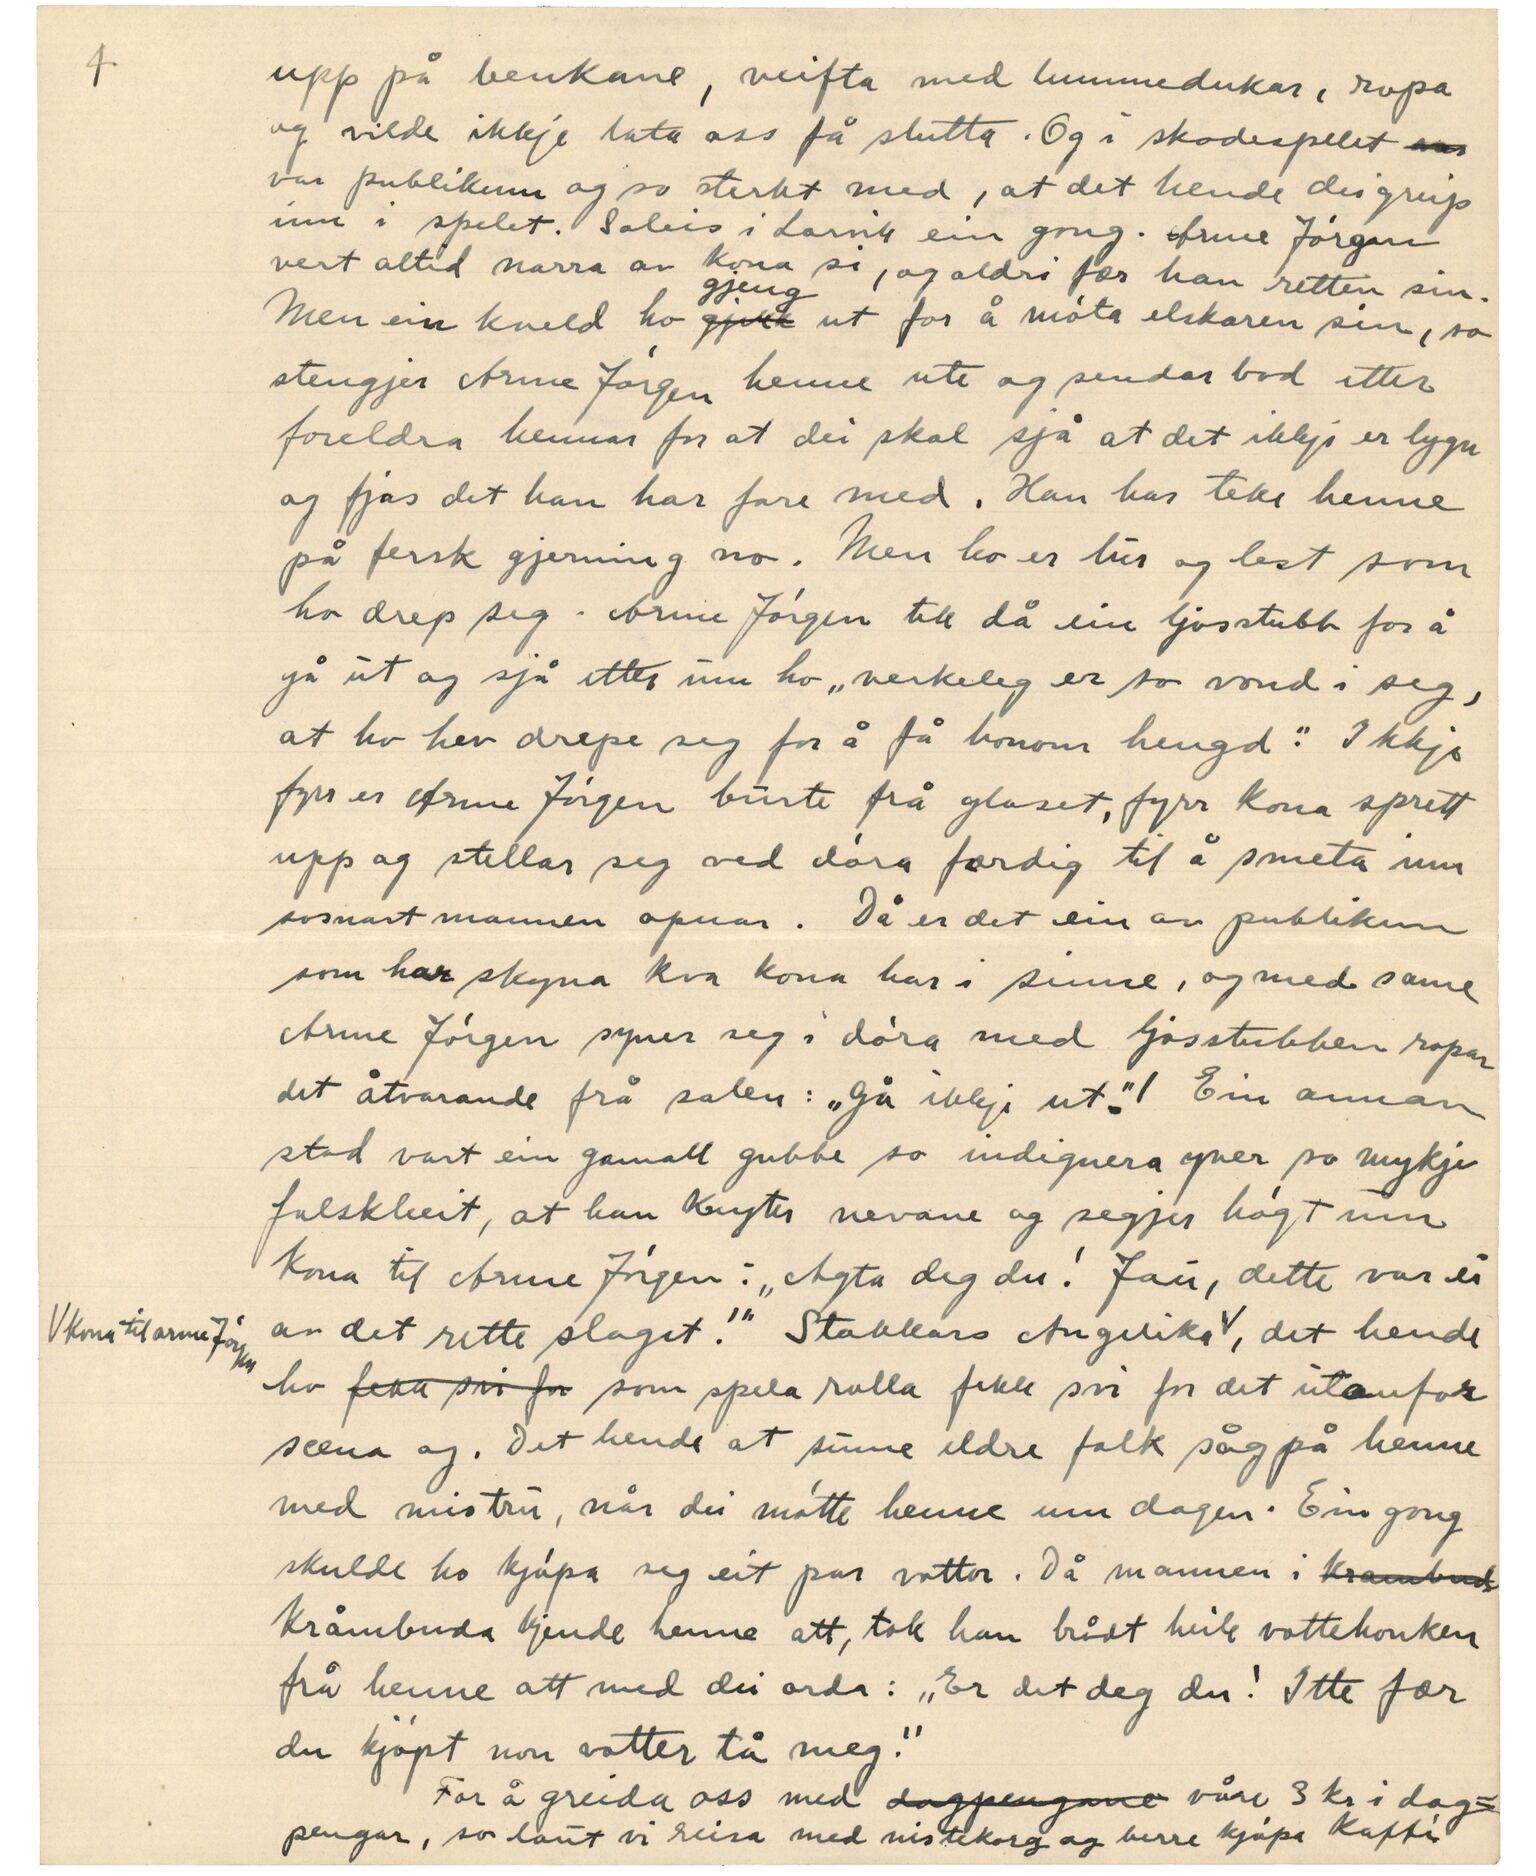 4
upp på benkane, veifta med lummedukar, ropa
og vilde ikkje lata oss få slutta. Og i skodespelet
var publikum og so sterkt med, at det hende dei greip
inn i spelet. Soleis i Larvik ein gong. Arme Jórgen
vert altid narra av kona si, og aldri fær han retten sin.
gjeng
Men ein kveld ho gjekk ut for å móta elskaren sin, so
stengjer Arme Jórgen henne ute og sendar bod etter
foreldra hennar for at dei skal sjå at det ikkje er lygn
og fjas det han har fare med. Han har teke henne
på fersk gjerning no. Men ho er lur og lest som
ho drep seg. Arme Jórgen tek då ein ljosstubb for å
gå ut og sjå etter um ho „verkeleg er so vond i seg,
at ho hev drepe seg for å få honom hengd". Ikkje
fyrr er Arme Jórgen burte frå glaset, fyrr kona sprett
upp og stellar seg ved dóra færdig til å smeta inn
sosnart mannen opnar. Då er det ein av publikum
som har skyna kva kona har i sinne, og med same
Arme Jórgen syner seg i dóra med ljosstubben ropar
det åtvarande frå salen: „Gå ikkje ut"! Ein annan
stad vart ein gamall gubbe so indignera yver so mykje
falskheit, at han knyter nevane og segjer hógt um
kona til Arme Jórgen: „Agta deg du! Jau, dette var ei
av det rette slaget!" Stakkars Angelika V, det hende
V kona til arme Jórgen
ho fekk svi for som spela rolla fekk svi for det utanfor
scena og. Det hende at sume eldre folk såg på henne
med mistru, når dei mótte henne um dagen. Ein gong
skulde ho kjópa seg eit par vottor. Då mannen i krambuda
Kråmbuda kjende henne att, tok han brådt heile vottehonken
frå henne att med dei orda: „Er det deg du! Itte fær
du kjópt non votter tå meg!"
For å greida oss med dagpengane våre 3 kr i dag=
pengar, so laut vi reisa med nistekorg og berre kjópa Kaffi